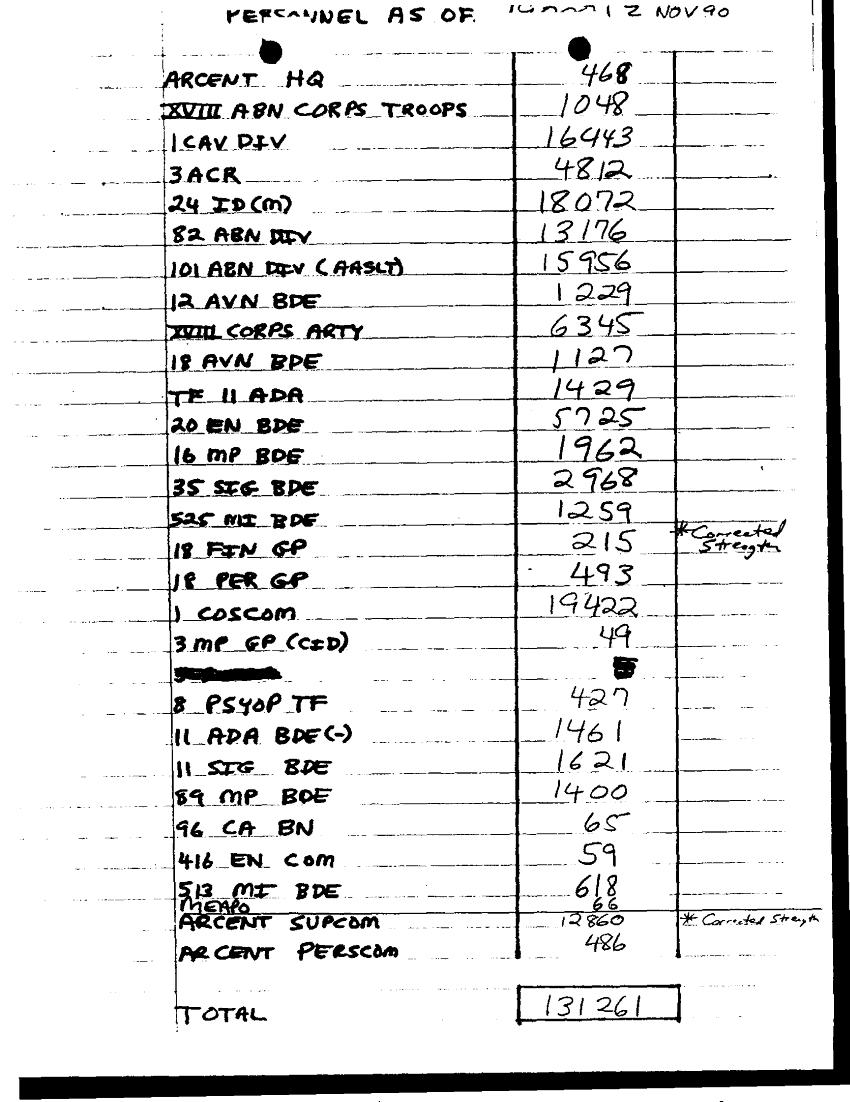 PERSONNEL AS OF 12 NOV 90
ARCENT HQ 468
XVIII ABN CORPS TROOPS 1048
1 CAV DIV 16443
3 ACR 4812
24 ID(M) 18072
82 ABN DIV 13176
101 ABN DIV (AASLT) 15956
12 AVN BDE 1229
XVIII CORPS ARTY 6345
18 AVN BDE 1127
TF 11 ADA 1429
20 EN BDE 5725
16 MP BDE 1962
35 SIG BDE 2968
525 MI BDE 1259
18 FIN GP 215 * Corrected
Strength
18 PER GP 493
1 COSCOM 19422
3 MP GP (CID) 49
8 PSYOP TF 427
11 ADA BDE(-) 1461
11 SIG BDE 1621
89 MP BDE 1400
96 CA BN 65
416 EN COM 59
513 MI BDE 618
MEAPO 66
ARCENT SUPCOM 12860 * Corrected Strength
ARCENT PERSCOM 486
TOTAL 131261